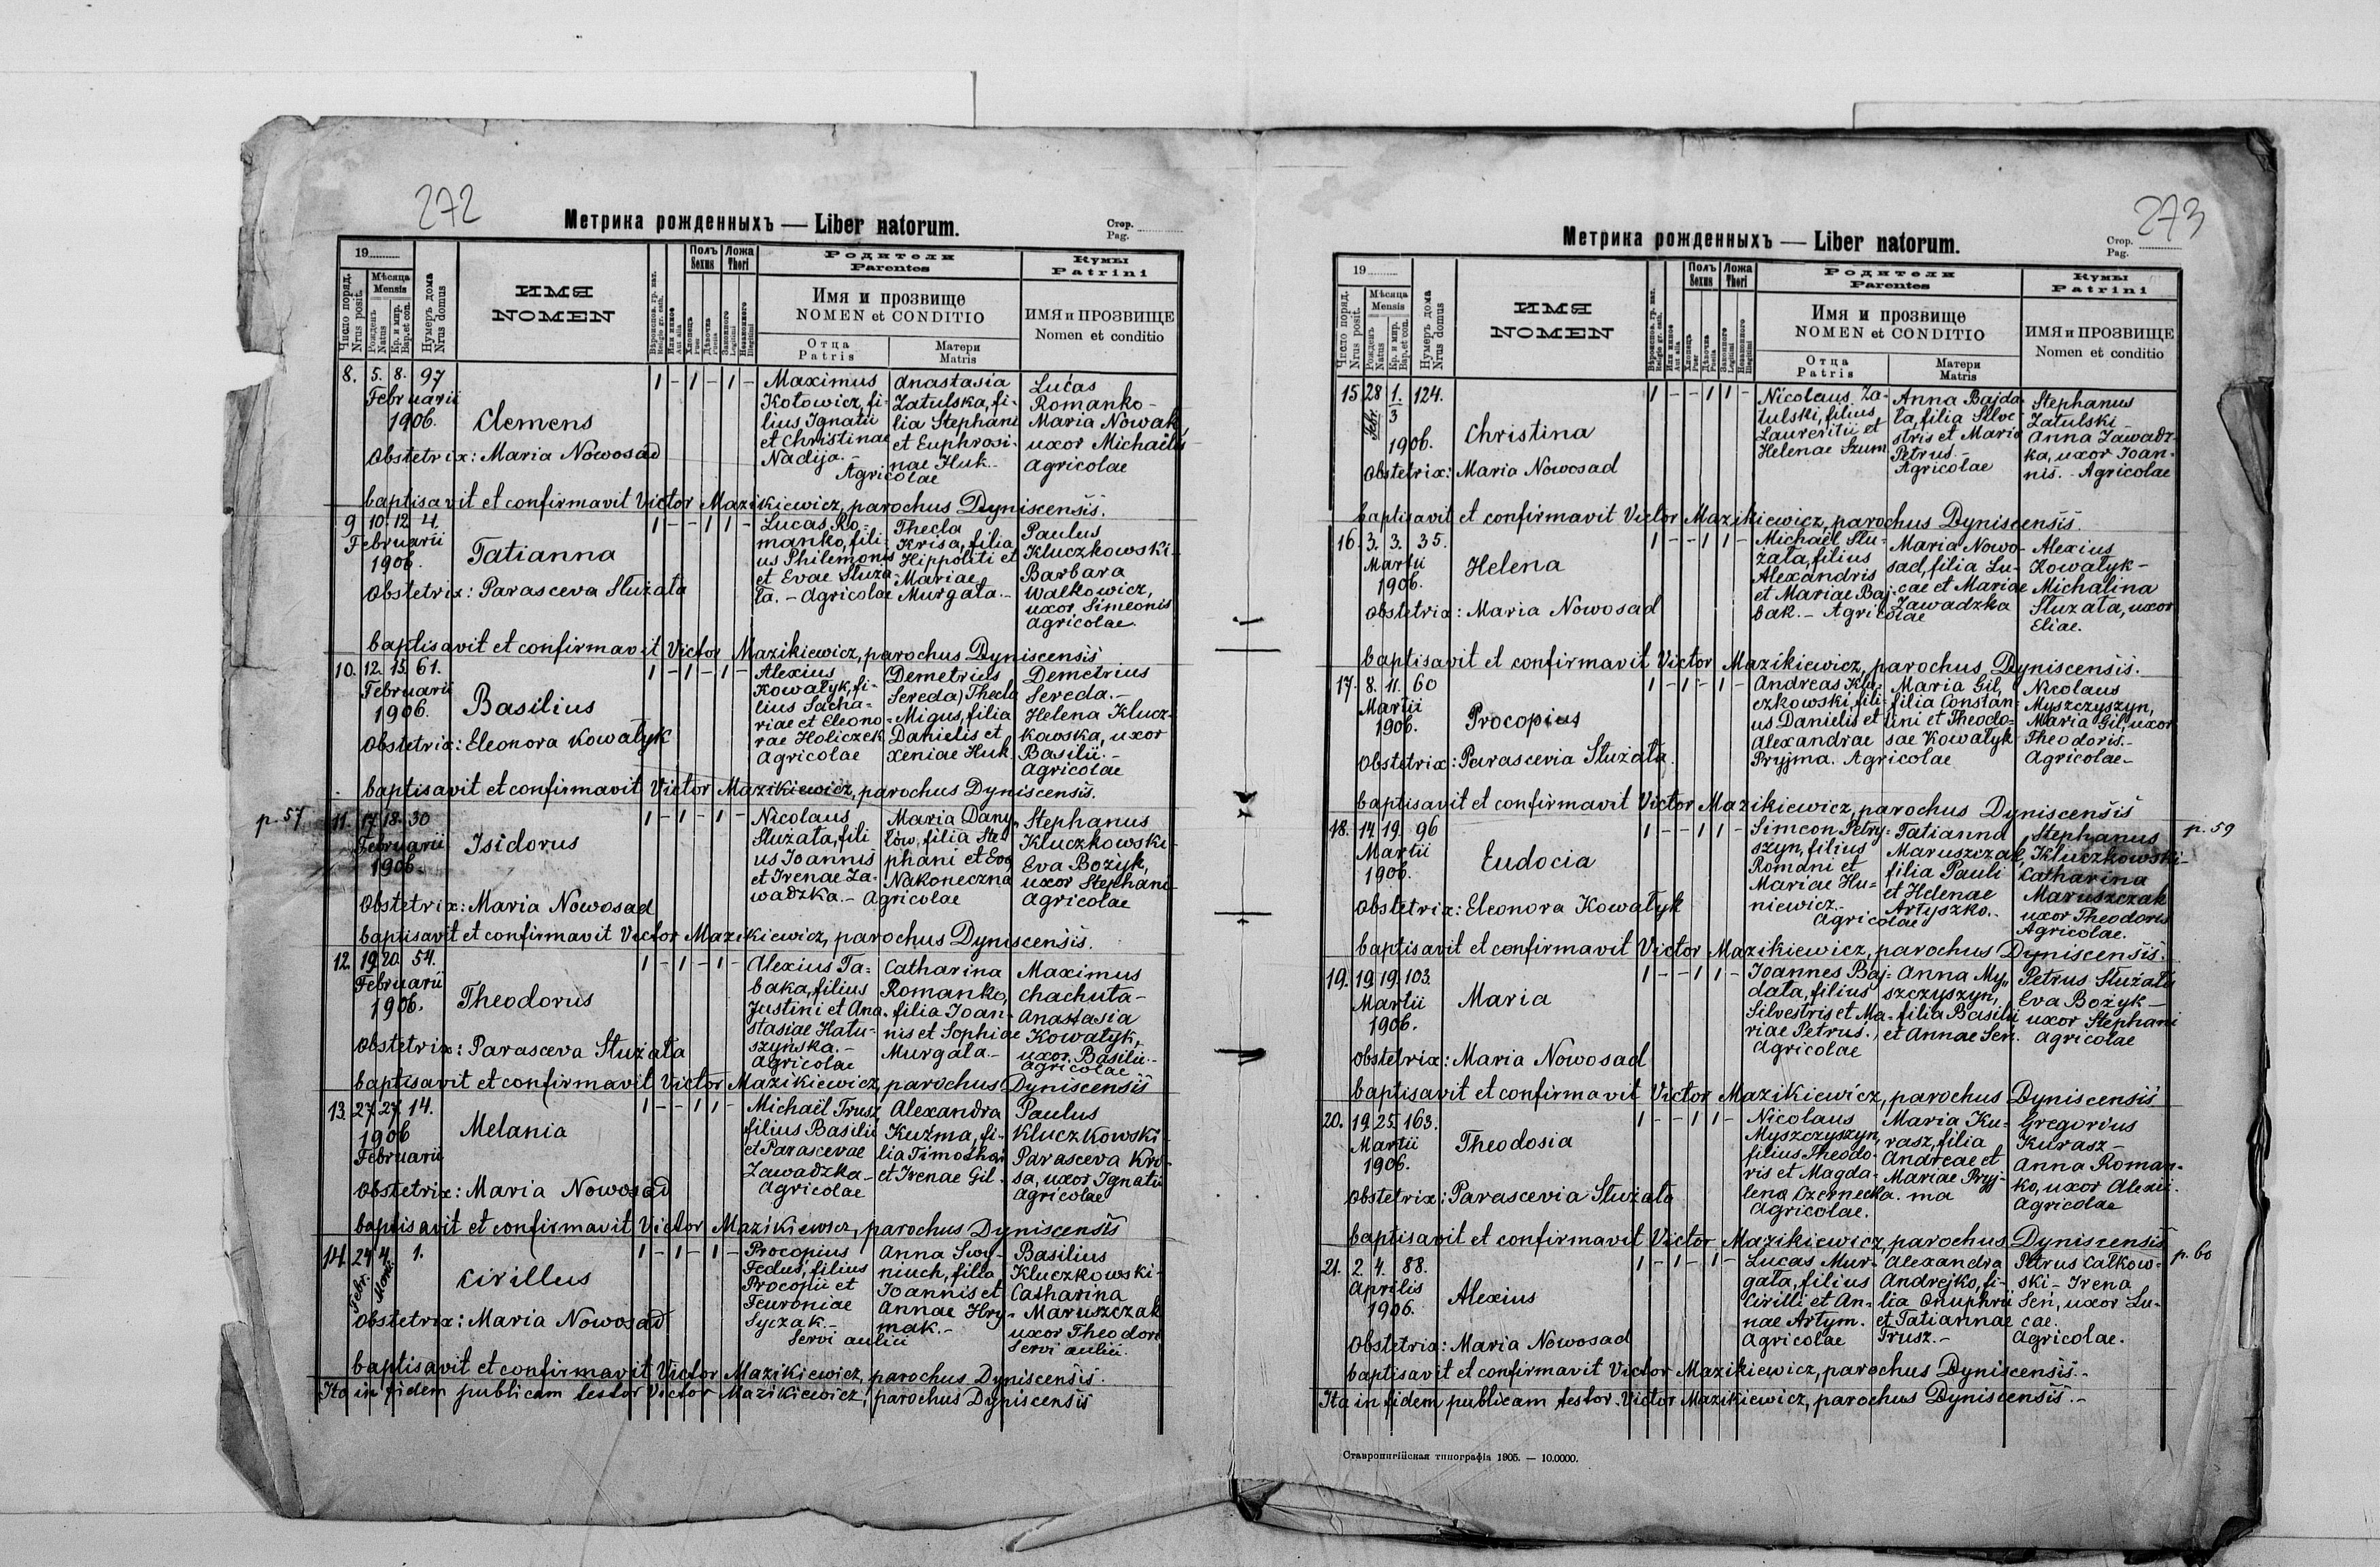 272
Метрика рожденныхъ — Liber natorum.
Стор.
Pag.
19
Число поряд.
Nrus posit.
Мѣсяца
Mensis
Рожденъ
Natus
Кр. и мир.
Bap. et con.
Нумеръ дома
Nrus domus
ИМЯ
NOMEN
Или иное
Aut alia
Полъ
Sexus
Хлопецъ
Puer
Дѣвочка
Puella
Ложа
Thori
Законного
Legitimi
Незаконного
Illegitimi
Родители
Parentes
Имя и прозвище
NOMEN et CONDITIO
Отца
Patris
Матери
Matris
Кумы
Patrini
ИМЯ и ПРОЗВИЩЕ
Nomen et conditio
8. 5. 8. 97
Februarii
1906.
Clemens
1 – 1 – 1 –
Maximus
Kotowicz, fi-
lius Ignatii
et Christinae
Nadija.–
Anastasia
Zatulska, fi-
lia Stephani
et Euphrosi-
nae Huk.–
Agricolae
Lucas
Romanko –
Maria Nowak,
uxor Michaëlis
Agricolae
Obstetrix: Maria Nowosad
baptisavit et confirmavit Victor Mazikiewicz, parochus Dyniscensis.
9 10. 12. 4.
Februarii
1906.
Tatianna
1 – – 1 1 –
Lucas Ro-
manko, fili-
us Philemonis
et Evae Służa-
ta. – Agricolae
Thecla
Krisa, filia
Hippoliti et
Mariae
Murgała.–
Paulus
Kluczkowski –
Barbara
Wałkowicz,
uxor Simeonis
Agricolae.
Obstetrix: Parasceva Służata
baptisavit et confirmavit Victor Mazikiewicz, parochus Dyniscensis
10. 12. 15. 61.
Februarii
1906.
Basilius
1 – 1 – 1 –
Alexius
Kowałyk, fi-
lius Sacha-
riae et Eleono-
rae Holiczek
Agricolae
(Demetrius
Sereda) Thecla
Migus, filia
Danielis et
Xeniae Huk.
Demetrius
Sereda.–
Helena Klucz-
kowska, uxor
Basilii.–
Agricolae
Obstetrix: Eleonora Kowałyk
baptisavit et confirmavit Victor Mazikiewicz, parochus Dyniscensis.
p. 57
11. 17. 18. 30
Februarii
1906.
Isidorus
1 – 1 – 1 –
Nicolaus
Służata, fili
us Joannis
et Irenae Za-
wadzka. – Agricolae
Maria Dany-
łow, filia Ste-
phani et Eva
Nakoneczna
Stephanus
Kluczkowski –
Eva Bożyk,
uxor Stephani –
Agricolae
Obstetrix: Maria Nowosad
baptisavit et confirmavit Victor Mazikiewicz, parochus Dyniscensis.
12. 19. 20. 54.
Februarii
1906.
Theodorus
1 – 1 – 1 –
Alexius Ta-
baka, filius
Justini et Ana-
stasiae Hatu-
szyńska.–
Agricolae
Catharina
Romanko,
filia Joan-
nis et Sophiae
Murgała.–
Maximus
Chachuta –
Anastasia
Kowałyk,
uxor Basilii.–
Agricolae
Obstetrix: Parasceva Służata
baptisavit et confirmavit Victor Mazikiewicz, parochus Dyniscensis
13. 27. 27. 14.
1906
Februarii
Melania
1 – – 1 1 –
Michaël Trusz
filius Basilii
et Parascevae
Zawadzka –
Agricolae
Alexandra
Kuźma, fi-
lia Timothei
et Irenae Gil.
Paulus
Kluczkowski –
Parasceva Kry-
sa, uxor Ignatii
Agricolae
Obstetrix: Maria Nowosad
baptisavit et confirmavit Victor Mazikiewicz, parochus Dyniscensis
14. 24 4. 1.
Febr.
Cirillus
1 – 1 – 1 –
Procopius
Feduś, filius
Procopii et
Feuroniae
Syczak.–
Servi aulici
Anna Swy-
niuch, filia
Joannis et
Annae Hry-
mak.–
Basilius
Kluczkowski –
Catharina
Maruszczak
uxor Theodori
Servi aulici.
Obstetrix: Maria Nowosad
baptisavit et confirmavit Victor Mazikiewicz, parochus Dyniscensis.
Ita in fidem publicam testor Victor Mazikiewicz, parochus Dyniscensis
273
Метрика рожденныхъ — Liber natorum.
Стор.
Pag.
19
Число поряд.
Nrus posit.
Мѣсяца
Mensis
Рожденъ
Natus
Кр. и мир.
Bap. et con.
Нумеръ дома
Nrus domus
ИМЯ
NOMEN
Или иное
Aut alia
Полъ
Sexus
Хлопецъ
Puer
Дѣвочка
Puella
Ложа
Thori
Законного
Legitimi
Незаконного
Illegitimi
Родители
Parentes
Имя и прозвище
NOMEN et CONDITIO
Отца
Patris
Матери
Matris
Кумы
Patrini
ИМЯ и ПРОЗВИЩЕ
Nomen et conditio
15. 28 1. 124.
Febr. 3
1906.
Christina
1 – – 1 1 –
Nicolaus Za-
tulski, filius
Laurentii et
Helenae Szum
Anna Bajda-
ta, filia Silve-
stris et Maria
Petrus.–
Agricolae
Stephanus
Zatulski –
Anna Zawadz-
ka, uxor Joan-
nis. – Agricolae
Obstetrix: Maria Nowosad
baptisavit et confirmavit Victor Mazikiewicz, parochus Dyniscensis.
16. 3. 3. 35.
Martii
1906.
Helena
1 – – 1 1 –
Michaël Słu-
żata, filius
Alexandris
et Mariae Baj-
bak. – Agricolae
Maria Nowo-
sad, filia Lu-
cae et Mariae
Zawadzka
Alexius
Kowałyk –
Michalina
Służata, uxor
Eliae.
Obstetrix: Maria Nowosad
baptisavit et confirmavit Victor Mazikiewicz, parochus Dyniscensis.
17. 8. 11. 60
Martii
1906.
Procopius
1 – 1 – 1 –
Andreas Klu-
czkowski, fili-
us Danielis et
Alexandrae
Pryjma. Agricolae
Maria Gil,
filia Constan-
tini et Theodo-
sae Kowałyk
Nicolaus
Myszczyszyn,
Maria Gil, uxor
Theodoris.–
Agricolae –
Obstetrix: Parascevia Służata.
baptisavit et confirmavit Victor Mazikiewicz, parochus Dyniscensis
p. 59
18. 14. 19. 96
Martii
1906.
Eudocia
1 – – 1 1 –
Simeon Petry-
szyn, filius
Romani et
Mariae Hu-
niewicz.–
Agricolae
Tatianna
Maruszczak,
filia Pauli
et Helenae
Artyszko.–
Stephanus
Kluczkowski –
Catharina
Maruszczak
uxor Theodoris
Agricolae.
Obstetrix: Eleonora Kowałyk
baptisavit et confirmavit Victor Mazikiewicz, parochus Dyniscensis.
19. 19. 19. 103.
Martii
1906.
Maria
1 – – 1 1 –
Joannes Baj-
data, filius
Silvestris et Ma-
riae Petruś.
Agricolae
Anna My-
szczyszyn,
filia Basilii
et Annae Seń.
Petrus Służata
Eva Bożyk –
uxor Stephani
Agricolae
Obstetrix: Maria Nowosad
baptisavit et confirmavit Victor Mazikiewicz, parochus Dyniscensis
20. 19. 25. 163.
Martii
1906.
Theodosia
1 – – 1 1 –
Nicolaus
Myszczyszyn,
filius Theodo-
ris et Magda-
lena Czernecka.
Agricolae.
Maria Ku-
rasz, filia
Andreae et
Mariae Pryj-
ma
Gregorius
Kurasz –
Anna Roman-
ko, uxor Alexii.
Agricolae
Obstetrix: Parascevia Służata
baptisavit et confirmavit Victor Mazikiewicz, parochus Dyniscensis
p. 60
21. 2. 4. 88.
Aprilis
1906.
Alexius
1 – 1 – 1 –
Lucas Mur-
gała, filius
Cirilli et An-
nae Artym.
Agricolae
Alexandra
Andrejko, fi-
lia Onuphrii
et Tatiannae
Trusz.–
Petrus Całkow-
ski – Irena
Seń, uxor Lu-
cae.
Agricolae.
Obstetrix: Maria Nowosad
baptisavit et confirmavit Victor Mazikiewicz, parochus Dyniscensis.–
Ita in fidem publicam testor. Victor Mazikiewicz, parochus Dyniscensis.–
Ставропигійская типографія 1905. — 10.0000.